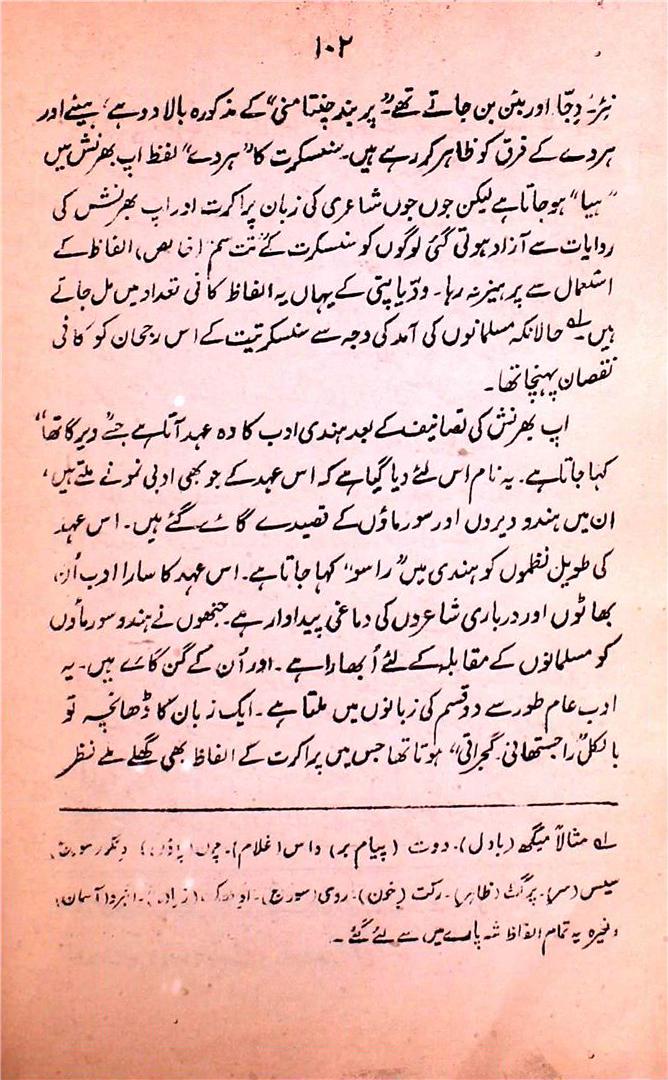 ۱۰۲
نئز۔ دِجّا اور بئن بن جاتے تھے۔ "پر بندھ چنتامنی" کے مذکورہ بالا دوہے، ہیئے اور
ہردے کے فرق کو ظاہر کر رہے ہیں۔ سنسکرت کا "ہردے" لفظ اپ بھرنش میں
"ہیا" ہو جاتا ہے لیکن جوں جوں شاعری کی زبان پراکرت اور اپ بھرنش کی
روایات سے آزاد ہوتی گئی لوگوں کو سنسکرت کے تت سم (خالص) الفاظ کے
استعمال سے پرہیز نہ رہا۔ ودّیاپتی کے یہاں یہ الفاظ کافی تعداد میں مل جاتے
ہیں۔ لہ حالانکہ مسلمانوں کی آمد کی وجہ سے سنسکرتیت کے اس رجحان کو کافی
نقصان پہنچا تھا۔
اپ بھرنش کی تصانیف کے بعد ہندی ادب کا وہ عہد آتا ہے جسے "ویرگاتھا"
کہا جاتا ہے۔ یہ نام اس لئے دیا گیا ہے کہ اس عہد کے جو بھی ادبی نمونے ملتے ہیں،
ان میں ہندو ویروں اور سورماؤں کے قصیدے گائے گئے ہیں۔ اس عہد
کی طویل نظموں کو ہندی میں "راسو" کہا جاتا ہے۔ اس عہد کا سارا ادب اُن
بھاٹوں اور درباری شاعروں کی دماغی پیداوار ہے۔ جنھوں نے ہندو سورماؤں
کو مسلمانوں کے مقابلہ کے لئے اُبھارا ہے۔ اور اُن کے گن گائے ہیں۔ یہ
ادب عام طور سے دو قسم کی زبانوں میں ملتا ہے۔ ایک زبان کا ڈھانچہ تو
بالکل "راجستھانی۔ گجراتی" ہوتا تھا جس میں پراکرت کے الفاظ بھی گھلے ملے نظر
لہ مثالاً میگھ (بادل)۔ دوت (پیام بر) داس (غلام)۔ چرن (پاؤں)
سیس (سر)۔ پرگٹ (ظاہر)۔ رکت (خون)۔ روی (سورج)۔ (زیادہ)۔ (آسمان)
وغیرہ یہ تمام الفاظ میں سے لئے گئے۔